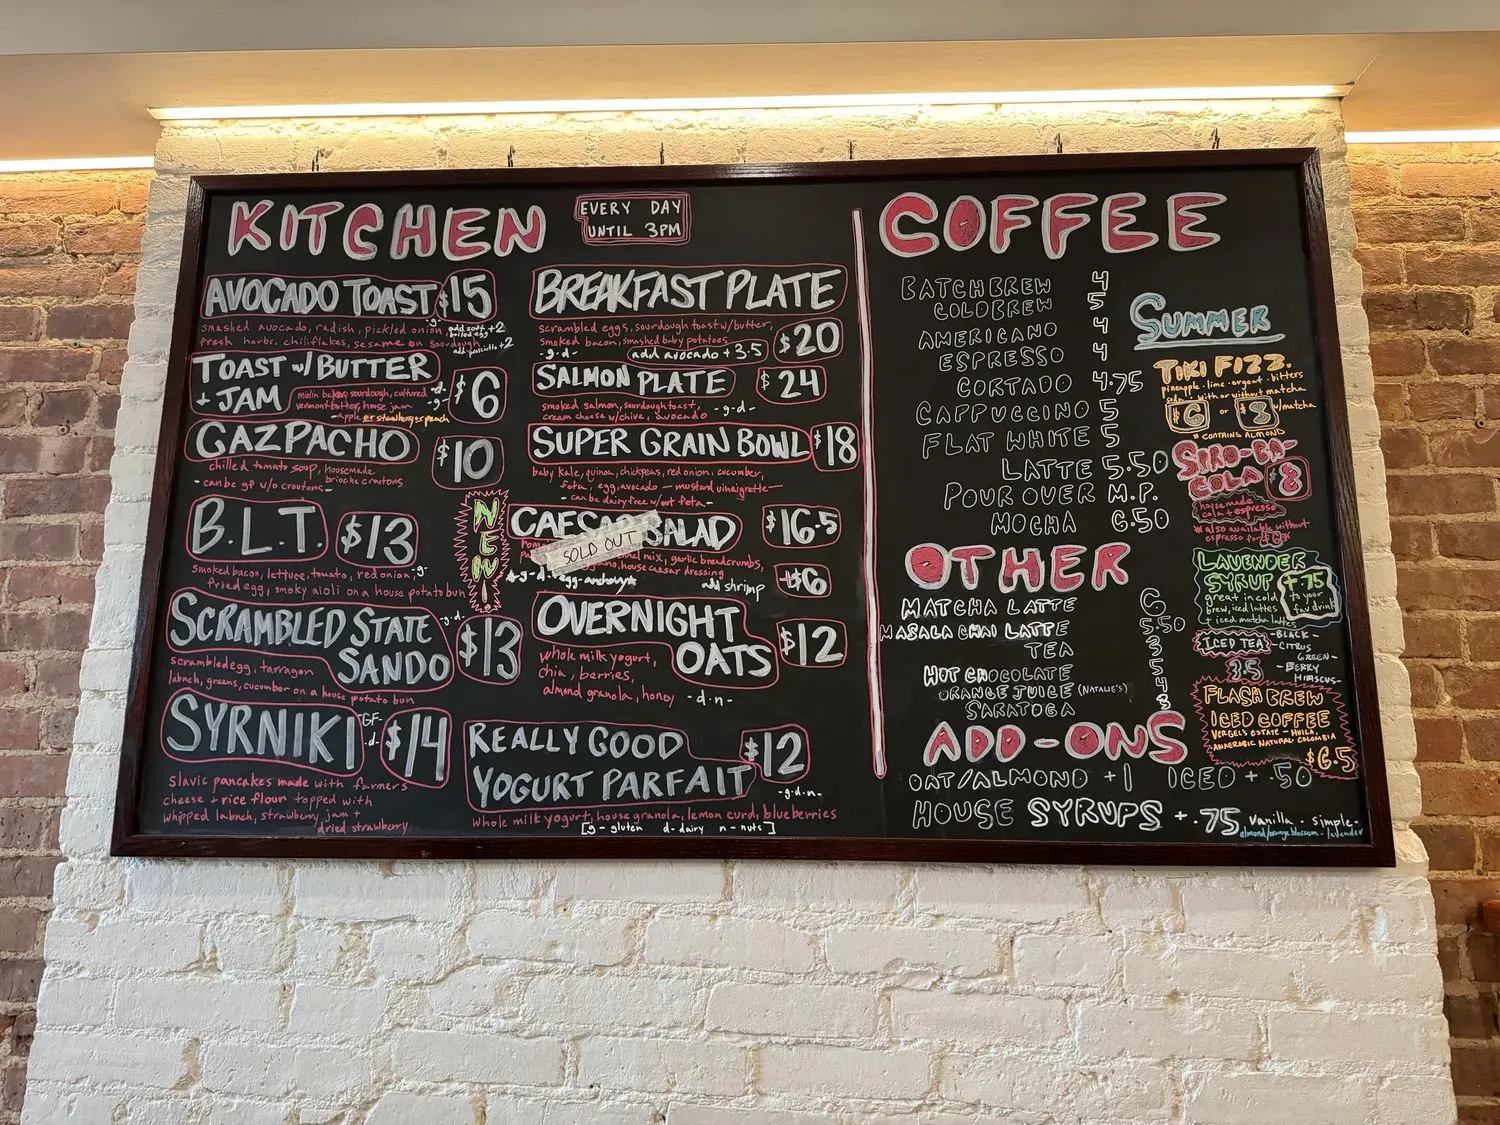 KITCHEN
EVERY DAY
UNTIL 3PM
AVOCADO TOAST $15
smashed avocado, radish, pickled onion,
fresh herbs, chiliflakes, sesame on sourdough
-g-
add soft +2
boiled egg
add prosciutto +2
TOAST w/ BUTTER
+ JAM $6
miolin bakery sourdough, cultured
vermont butter, house jam
-apple or strawberry peach
-d-
-g-
GAZPACHO $10
chilled tomato soup, housemade
brioche croutons
- can be gf w/o croutons -
B.L.T. $13
smoked bacon, lettuce, tomato, red onion, -g-
fried egg, smoky aioli on a house potato bun
SCRAMBLED STATE
SANDO $13
-g-d-
scrambled egg, tarragon
labneh, greens, cucumber on a house potato bun
SYRNIKI $14
-GF-
-d-
slavic pancakes made with farmers
cheese + rice flour topped with
whipped labneh, strawberry jam +
dried strawberry
BREAKFAST PLATE
$20
scrambled eggs, sourdough toast w/butter,
smoked bacon, smashed baby potatoes
-g-d-
add avocado + 3.5
SALMON PLATE $24
smoked salmon, sourdough toast,
cream cheese w/chive, avocado
-g-d-
SUPER GRAIN BOWL $18
baby kale, quinoa, chickpeas, red onion, cucumber,
feta, egg, avocado — mustard vinaigrette —
- can be dairy free w/out feta -
NEW!
CAESAR SALAD $16.5
SOLD OUT
mix, garlic breadcrumbs,
house caesar dressing
-g-d-egg-anchovy
add shrimp +$6
OVERNIGHT
OATS $12
whole milk yogurt,
chia, berries,
almond granola, honey -d-n-
REALLY GOOD
YOGURT PARFAIT $12
-g-d-n-
whole milk yogurt, house granola, lemon curd, blueberries
[g - gluten d - dairy n - nuts]
COFFEE
BATCH BREW 4
COLD BREW 5
AMERICANO 4
ESPRESSO 4
CORTADO 4.75
CAPPUCCINO 5
FLAT WHITE 5
LATTE 5.50
POUR OVER M.P.
MOCHA 6.50
OTHER
MATCHA LATTE 6
MASALA CHAI LATTE 5.50
TEA 3
HOT CHOCOLATE 5
ORANGE JUICE (NATALIE'S)
SARATOGA
ADD-ONS
OAT/ALMOND +1 ICED + .50
HOUSE SYRUPS +.75 vanilla - simple -
almond/orange blossom - lavender
SUMMER
TIKI FIZZ.
pineapple - lime - orgeat - bitters
soda - with or without matcha
$6 or $8 w/matcha
* CONTAINS ALMOND
SIRO-BA-
COLA $8
housemade
cola + espresso
* also available without
espresso for $6 *
LAVENDER
SYRUP
great in cold
brew, iced lattes
+ iced matcha lattes
+.75
to your
fav drink
ICED TEA
3.5
- BLACK -
- CITRUS
GREEN -
- BERRY
HIBISCUS -
FLASH BREW
ICED COFFEE
VERGEL'S ESTATE - HUILA,
ANAEROBIC NATURAL COLOMBIA
$6.5